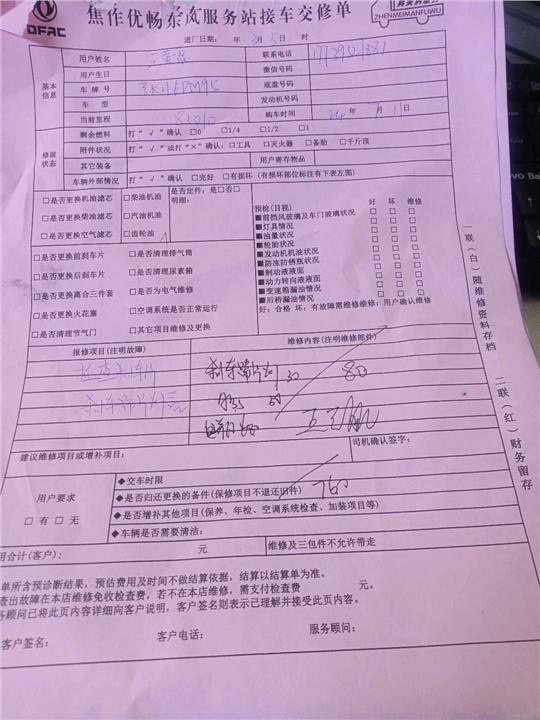 DFAC
焦作优畅东风服务站接车交修单
ZHENMEIMANFUWU
进厂日期: 年 3月 5日 时
基本信息
用户姓名
联系电话
用户生日
微信号码
车牌号
底盘号码
车型
发动机号码
当前里程 82010
购车时间 24年 月 11日
修前状态
剩余燃料 打“√”确认 □0 □1/4 □1/2 □1
附件状况 打“√”或打“×”确认: □工具 □灭火器 □备胎 □千斤顶
其它装备
用户寄存物品
车辆外部情况 打“√”确认 □完好 □有损坏 (有损坏部位标注有下表左图)
□是否更换机油滤芯 □柴油机油 是否定件: 是□否□
□是否更换柴油滤芯 □汽油机油 明细:
□是否更换空气滤芯 □齿轮油
□是否更换前刹车片 □是否清理排气筒
□是否更换后刹车片 □是否清理尿素箱
□是否更换离合三件套 □是否为电气维修
□是否更换火花塞 □空调系统是否正常运行
□是否清理节气门 □其它项目维修及更换
预检(目视) 好 坏 维修
■前挡风玻璃及车门玻璃状况 □ □ □
■灯具情况 □ □ □
■油量状况 □ □ □
■轮胎状况 □ □ □
■发动机机油状况 □ □ □
■防冻防锈瓶状况 □ □ □
■制动液液面 □ □ □
■动力转向液液面 □ □ □
■变速箱漏油情况 □ □ □
■后桥漏油情况 □ □ □
好: 合格 坏: 有故障需维修维修: 用户确认维修
报修项目(注明故障)
维修内容(注明维修部件)
检查刹车片
80
建议维修项目或增补项目:
司机确认签字:
用户要求
□有 □无
◆交车时限
◆是否归还更换的备件(保修项目不退还旧件) 760
◆是否增补其他项目(保养、年检、空调系统检查、加装项目等)
◆车辆是否需要清洁:
用合计(客户): 元
维修及三包件不允许带走
单所含预诊断结果,预估费用及时间不做结算依据,结算以结算单为准。
查出故障在本店维修免收检查费,若不在本店维修,需支付检查费 元。
务顾问已将此页内容详细向客户说明,客户签名则表示已理解并接受此页内容。
客户签名: 客户电话: 服务顾问:
一联(白)随维修资料存档
二联(红)财务留存